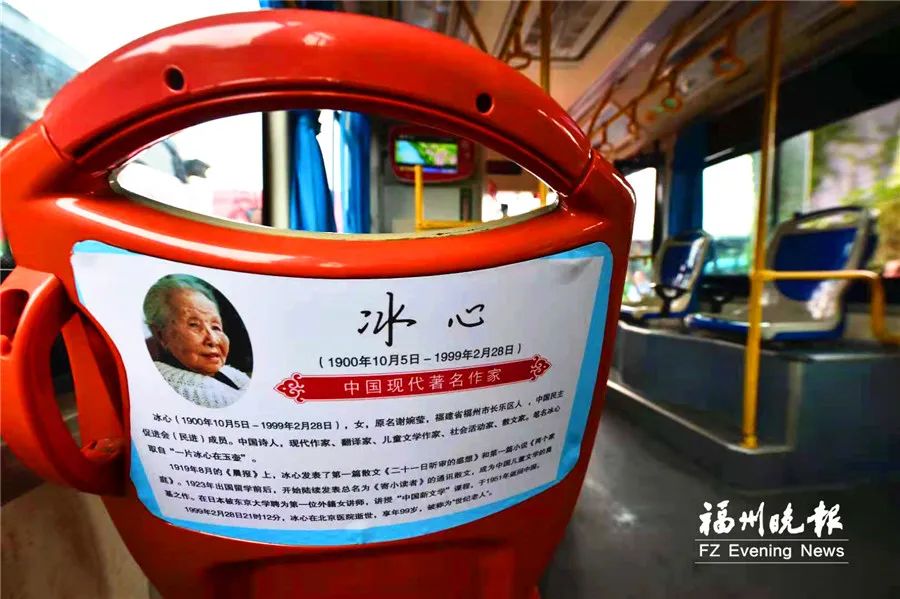 冰心
(1900年10月5日-1999年2月28日)
中国现代著名作家
冰心(1900年10月5日-1999年2月28日),女,原名谢婉莹,福建省福州市长乐区人,中国民主
促进会(民进)成员。中国诗人,现代作家、翻译家、儿童文学作家、社会活动家、散文家。笔名冰心
取自“一片冰心在玉壶”。
1919年8月的《晨报》上,冰心发表了第一篇散文《二十一日听审的感想》和第一篇小说《两个家
庭》。1923年出国留学前后,开始陆续发表总名为《寄小读者》的通讯散文,成为中国儿童文学的奠
基之作。在日本被东京大学聘为第一位外籍女讲师,讲授“中国新文学”课程,于1951年返回中国。
1999年2月28日21时12分,冰心在北京医院逝世,享年99岁,被称为“世纪老人”。
福州晚报
FZ Evening News